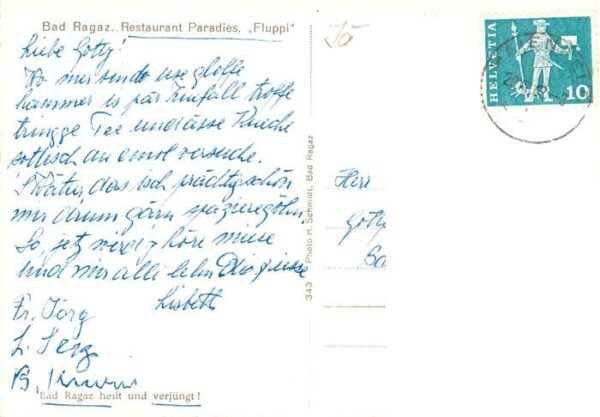 Bad Ragaz. Restaurant Paradies, „Fluppi"
Jä
Liebe Gotty!
Wo mir sind do use gloffe
hammer is pär Zuefall troffe
tringge Tee und ässe Kueche
söttisch au emol versueche.
's Wätter, das isch prächtig schön
mir drum gärn spaziere göhn.
So, jetz wird g'höre miese
und mir alli lehn Die griesse
Lisbeth
Fr. Jörg
L.
B.
Bad Ragaz heilt und verjüngt!
343 Photo H. Schmidt, Bad Ragaz
HELVETIA
10
Herr
Gotty